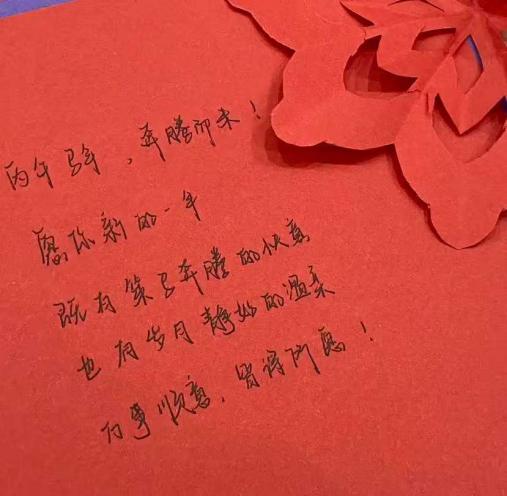 丙午马年，奔腾而来！
愿你新的一年
既有策马奔腾的快意
也有岁月静好的温柔
万事顺意，皆得所愿！